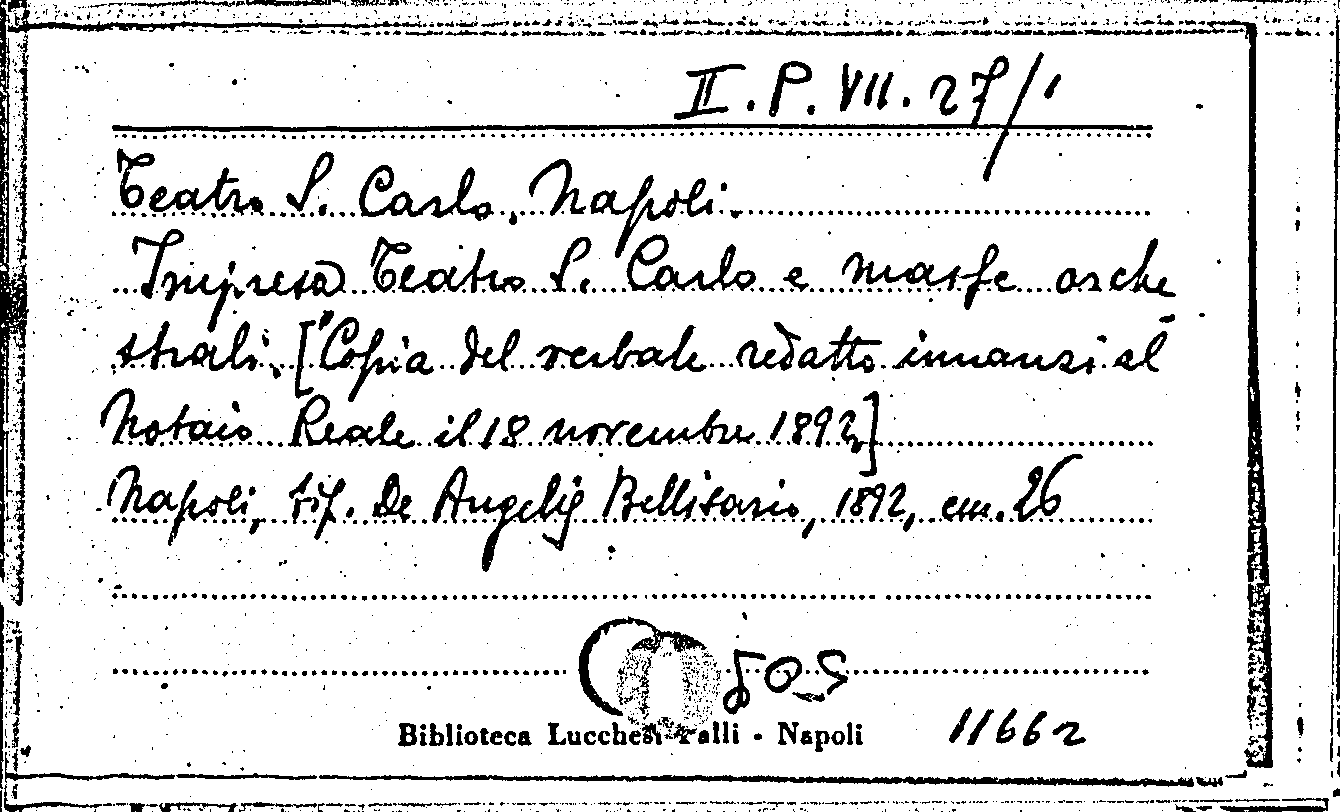 II. P. VII. 27/1
Teatro S. Carlo, Napoli.
Impresa Teatro S. Carlo e masse orche-
strali. ["Copia del verbale redatto innanzi al
Notaio Reale il 18 novembre 1892]
Napoli, tip. De Angelis Bellisario, 1892, cm. 26
505
Biblioteca Lucchesi-Palli - Napoli
11662